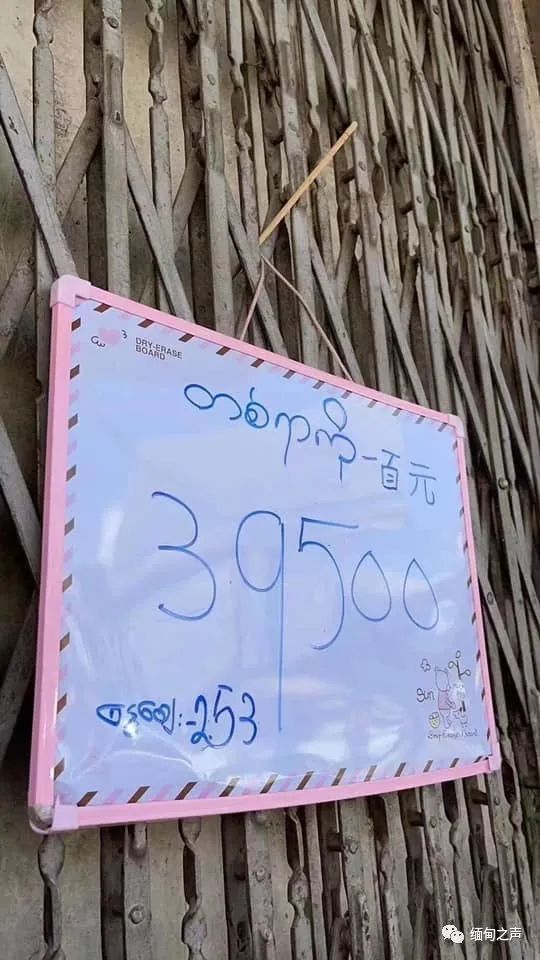 DRY-ERASE
BOARD
တစ်ရာကို 一百元
39500
ဈေး-253
Sun
缅甸之声